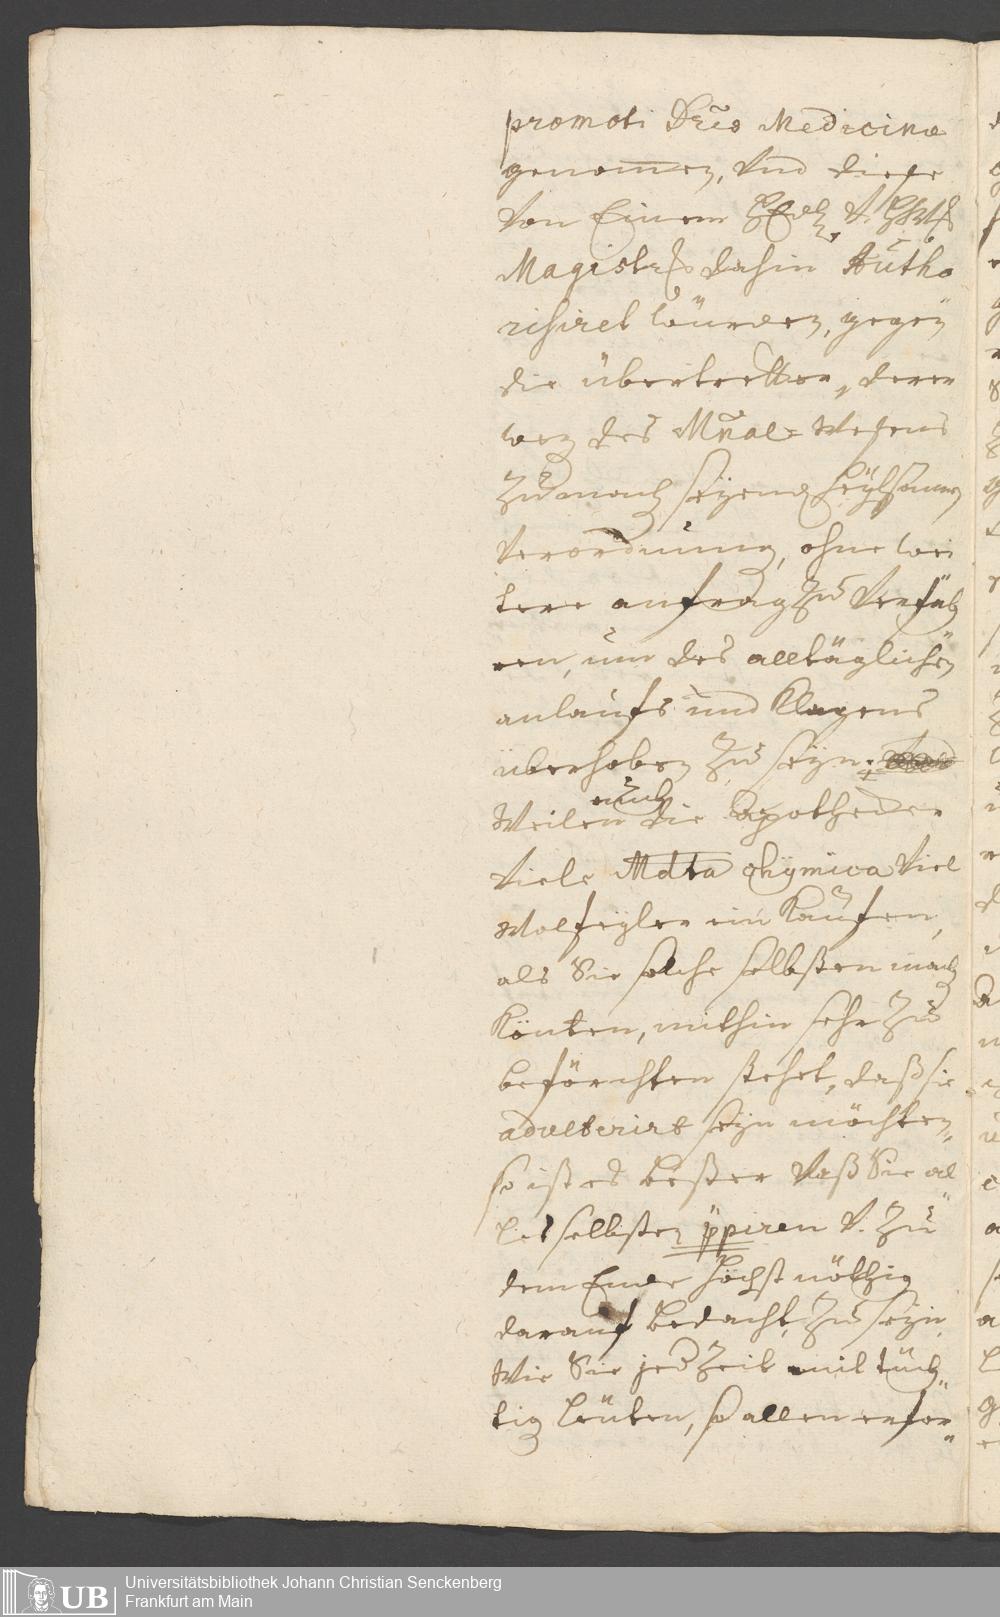 promoti Dres Medicinæ
genommen, Und diese
Von Einem HEdl. V.
Magistrs dahin Autho
risiret würden, gegen
die übertretter, derer
weg. des Mñal-Wesens
Zudmach seyend heylsamen
Verordnung, ohne wei
tere anfrag zu Verfah
ren, um des alltäglichen
anlaufs und Klagens
überhoben zu seyn.
Weilen auch die Apothecker
Viele Mdta chymica Viel
Wolfeyler ein Kaufen,
als Sie solche selbsten mach
Könten, mithin sehr zu
beförchten stehet, daß sie
adulterirt seyn möchten,
so ist es beßer daß Sie al
les selbsten ppiren V. zu
dem Ende höchst nöthig
darauf bedacht zu seyn,
Wie Sie jedzeit mit tüch
tig leuten, so allen erfor
Universitätsbibliothek Johann Christian Senckenberg
Frankfurt am Main
UB